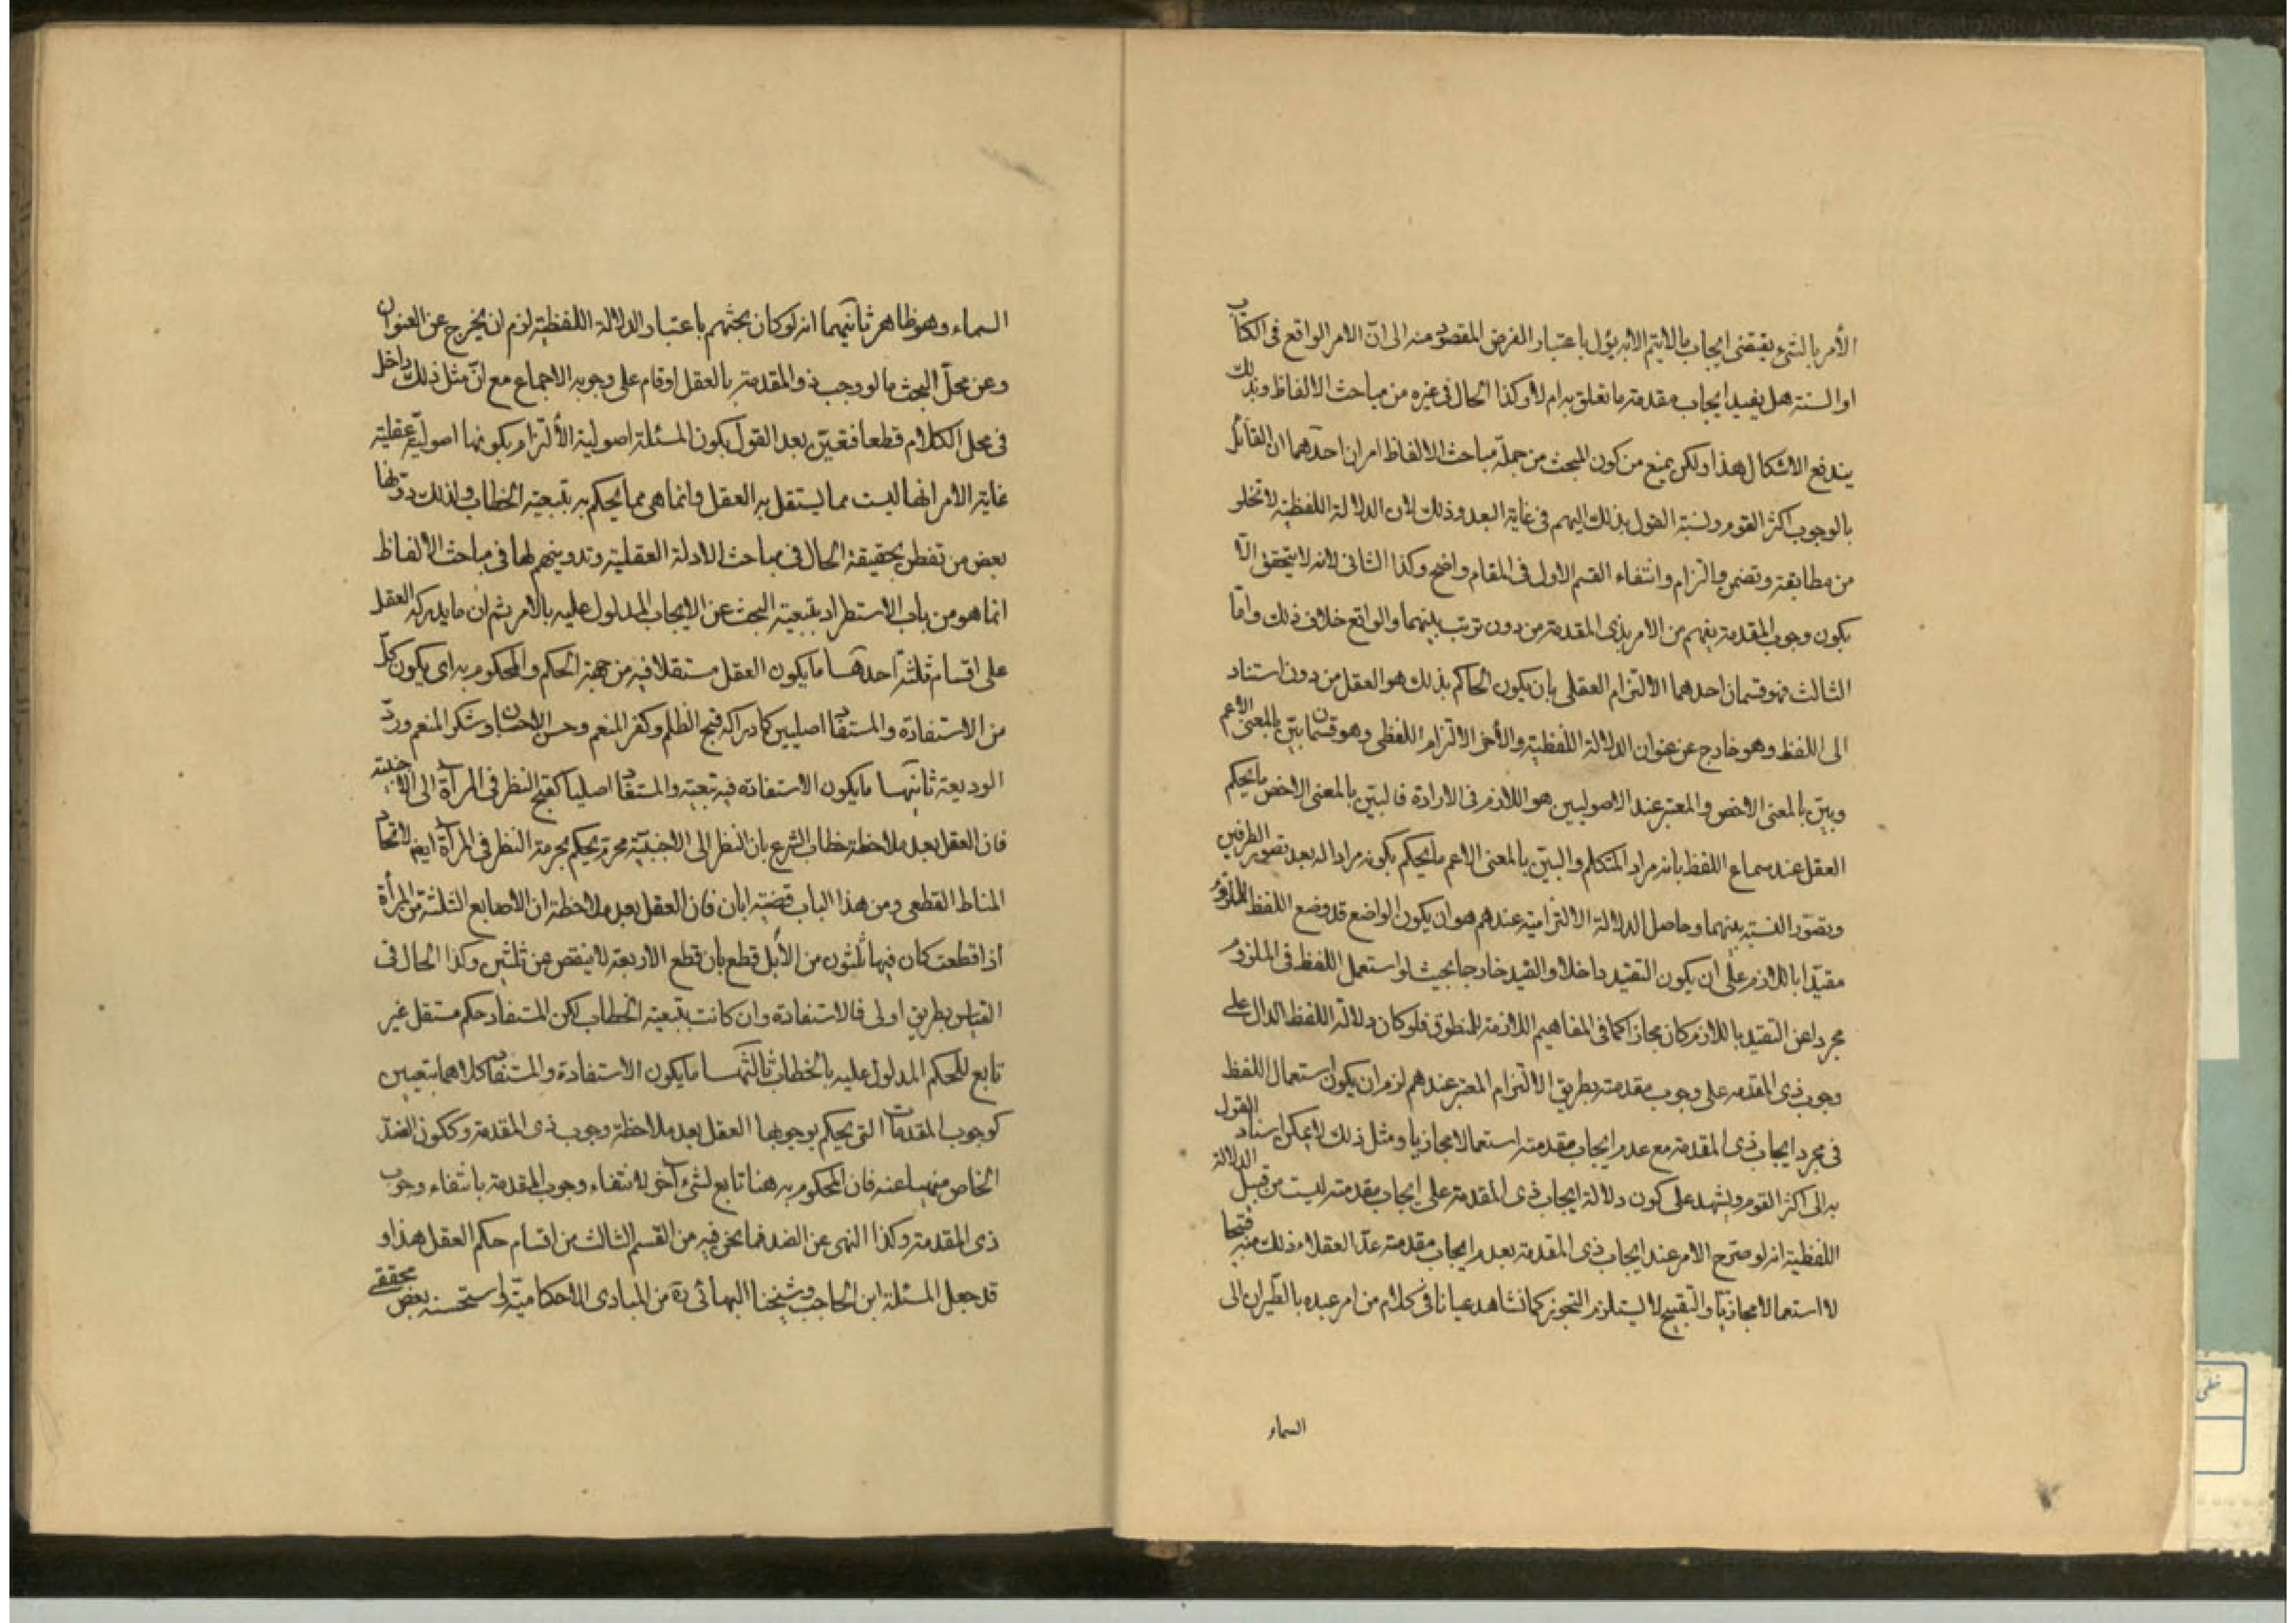 الأمر بالشيء يقتضى ايجاب ما لا يتم الا به يؤل باعتبار الغرض المقصود منه الى انّ الامر الواقع فى الكتاب
او السنة هل يفيد ايجاب مقدمة ما تعلق به ام لا وكذا الحال فى غيره من مباحث الالفاظ وبذلك
يندفع الاشكال هذا ولكن يمنع من كون المبحث من جملة مباحث الالفاظ امران احدهما ان القائل
بالوجوب اكثر القوم ونسبة القول بذلك اليهم فى غاية البعد وذلك لان الدلالة اللفظية لا تخلو
من مطابقة وتضمن والتزام وانتفاء القسم الاول فى المقام واضح وكذا الثانى لانه لا يتحقق الّا
بكون وجوب المقدمة يفهم من الامر بذى المقدمة من دون ترتب بينهما والواقع خلاف ذلك وامّا
الثالث فهو قسمان احدهما الالتزام العقلى بان يكون الحاكم بذلك هو العقل من دون استناد
الى اللفظ وهو خارج عن عنوان الدلالة اللفظية والأخر الالتزام اللفظى وهو قسمان بيّن بالمعنى الاعم
وبيّن بالمعنى الاخص والمعتبر عند الاصوليين هو اللازم فى الارادة فالبيّن بالمعنى الاخص ما يحكم
العقل عند سماع اللفظ بانه مراد المتكلم والبيّن بالمعنى الاعم ما يحكم بكونه مرادا له بعد تصور الطرفين
وتصوّر النسبة بينهما وحاصل الدلالة الالتزامية عندهم هو ان يكون الواضع قد وضع اللفظ للملزوم
مقيّدا باللازم على ان يكون التقيد داخلا والقيد خارجا بحيث لو استعمل اللفظ فى الملزوم
مجردا عن التقيد باللازم كان مجازا كما فى المفاهيم اللازمة للمنطوق فلو كان دلالة اللفظ الدال على
وجوب ذى المقدمه على وجوب مقدمته بطريق الالتزام المعتبر عندهم لزم ان يكون استعمال اللفظ
فى مجرد ايجاب ذى المقدمة مع عدم ايجاب مقدمته استعمالا مجازيا ومثل ذلك لا يمكن اسناد القول
به الى اكثر القوم ويشهد على كون دلالة ايجاب ذى المقدمة على ايجاب مقدمته ليست من قبيل الدلالة
اللفظية انه لو صرّح الامر عند ايجاب ذى المقدمة بعدم ايجاب مقدمته عدّ العقلاء ذلك منه قبيحا
لا استعمالا مجازيّا والتقبيح لا يستلزم التجوز كما نشاهد عيانا فى كلام من امر عبده بالطيران الى
السماء
السماء وهو ظاهر ثانيهما انه لو كان بحثهم باعتبار الدلالة اللفظية لزم ان يخرج عن العنوان
وعن محلّ البحث ما لو وجب ذو المقدمة بالعقل او قام على وجوبه الاجماع مع انّ مثل ذلك داخل
فى محل الكلام قطعا فتعيّن بعد القول بكون المسئلة اصولية الألتزام بكونها اصوليّة عقلية
غاية الامر انها ليست مما يستقل به العقل وانما هى مما يحكم به بتبعية الخطاب ولذلك دوّنها
بعض من تفطن بحقيقة الحال فى مباحث الادلة العقلية وتدوينهم لها فى مباحث الالفاظ
انما هو من باب الاستطراد بتبعية البحث عن الايجاب المدلول عليه بالامر ثم ان ما يدركه العقل
على اقسام ثلثة احدها ما يكون العقل مستقلا فيه من جهة الحكم والمحكوم به اى يكون كلّ
من الاستفادة والمستفاد اصليين كادراكه قبح الظلم وكفر المنعم وحسن الاحسان وشكر المنعم وردّ
الوديعة ثانيها ما يكون الاستفادة فيه تبعية والمستفاد اصليا كقبح النظر فى المرآة الى الاجنبية
فان العقل بعد ملاحظة خطاب الشرع بان النظر الى الاجنبيّة محرم يحكم بحرمة النظر فى المرآة ايضا لاتحاد
المناط القطعى ومن هذا الباب قضية ابان فان العقل بعد ملاحظة ان الاصابع الثلثة من المرأة
اذا قطعت كان فيها ثلثون من الأبل قطع بان قطع الاربعة لا ينقص من ثلثين وكذا الحال فى
القياس بطريق اولى فالاستفادة وان كانت بتبعية الخطاب لكن المستفاد حكم مستقل غير
تابع للحكم المدلول عليه بالخطاب ثالثها ما يكون الاستفادة والمستفاد كلاهما تبعيين
كوجوب المقدمات التى يحكم بوجوبها العقل بعد ملاحظة وجوب ذى المقدمة وككون الضدّ
الخاص منهيا عنه فان المحكوم به هنا تابع لشىء آخر لانتفاء وجوب المقدمة بانتفاء وجوب
ذى المقدمة وكذا النهى عن الضد فما نحن فيه من القسم الثالث من اقسام حكم العقل هذا و
قد جعل المسئلة ابن الحاجب وشيخنا البهائى ره من المبادى الاحكاميّة واستحسنه بعض محققى